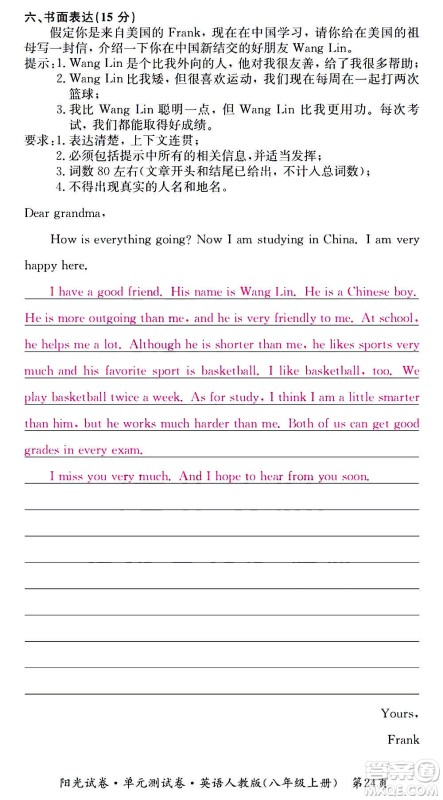 六、书面表达(15 分)
假定你是来自美国的 Frank，现在在中国学习，请你给在美国的祖
母写一封信，介绍一下你在中国新结交的好朋友 Wang Lin。
提示：1. Wang Lin 是个比我外向的人，他对我很友善，给了我很多帮助；
2. Wang Lin 比我矮，但很喜欢运动，我们现在每周在一起打两次
篮球；
3. 我比 Wang Lin 聪明一点，但 Wang Lin 比我更用功。每次考
试，我们都能取得好成绩。
要求：1. 表达清楚，上下文连贯；
2. 必须包括提示中所有的相关信息，并适当发挥；
3. 词数 80 左右(文章开头和结尾已给出，不计入总词数)；
4. 不得出现真实的人名和地名。
Dear grandma,
How is everything going? Now I am studying in China. I am very
happy here.
I have a good friend. His name is Wang Lin. He is a Chinese boy.
He is more outgoing than me, and he is very friendly to me. At school,
he helps me a lot. Although he is shorter than me, he likes sports very
much and his favorite sport is basketball. I like basketball, too. We
play basketball twice a week. As for study, I think I am a little smarter
than him, but he works much harder than me. Both of us can get good
grades in every exam.
I miss you very much. And I hope to hear from you soon.
Yours,
Frank
阳光试卷·单元测试卷·英语人教版(八年级上册) 第24页